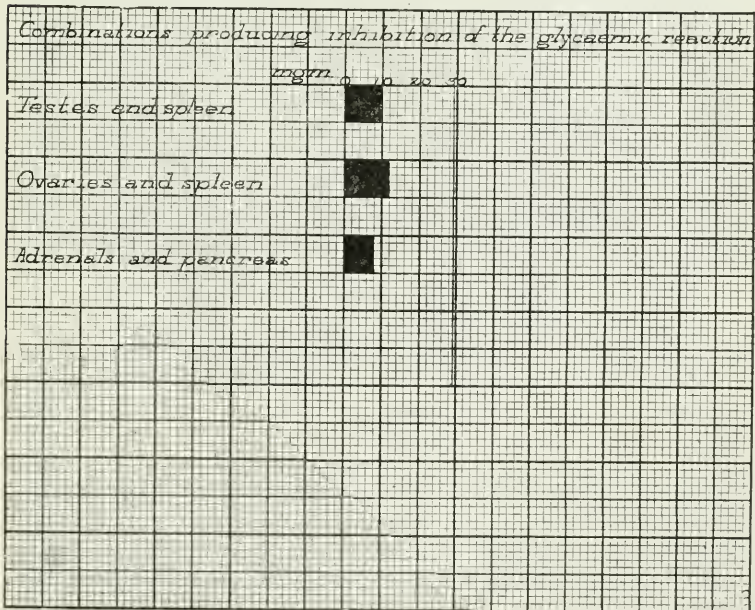 Combinations producing inhibition of the glycaemic reaction
mgm. 0 10 20 30
Testes and spleen
Ovaries and spleen
Adrenals and pancreas